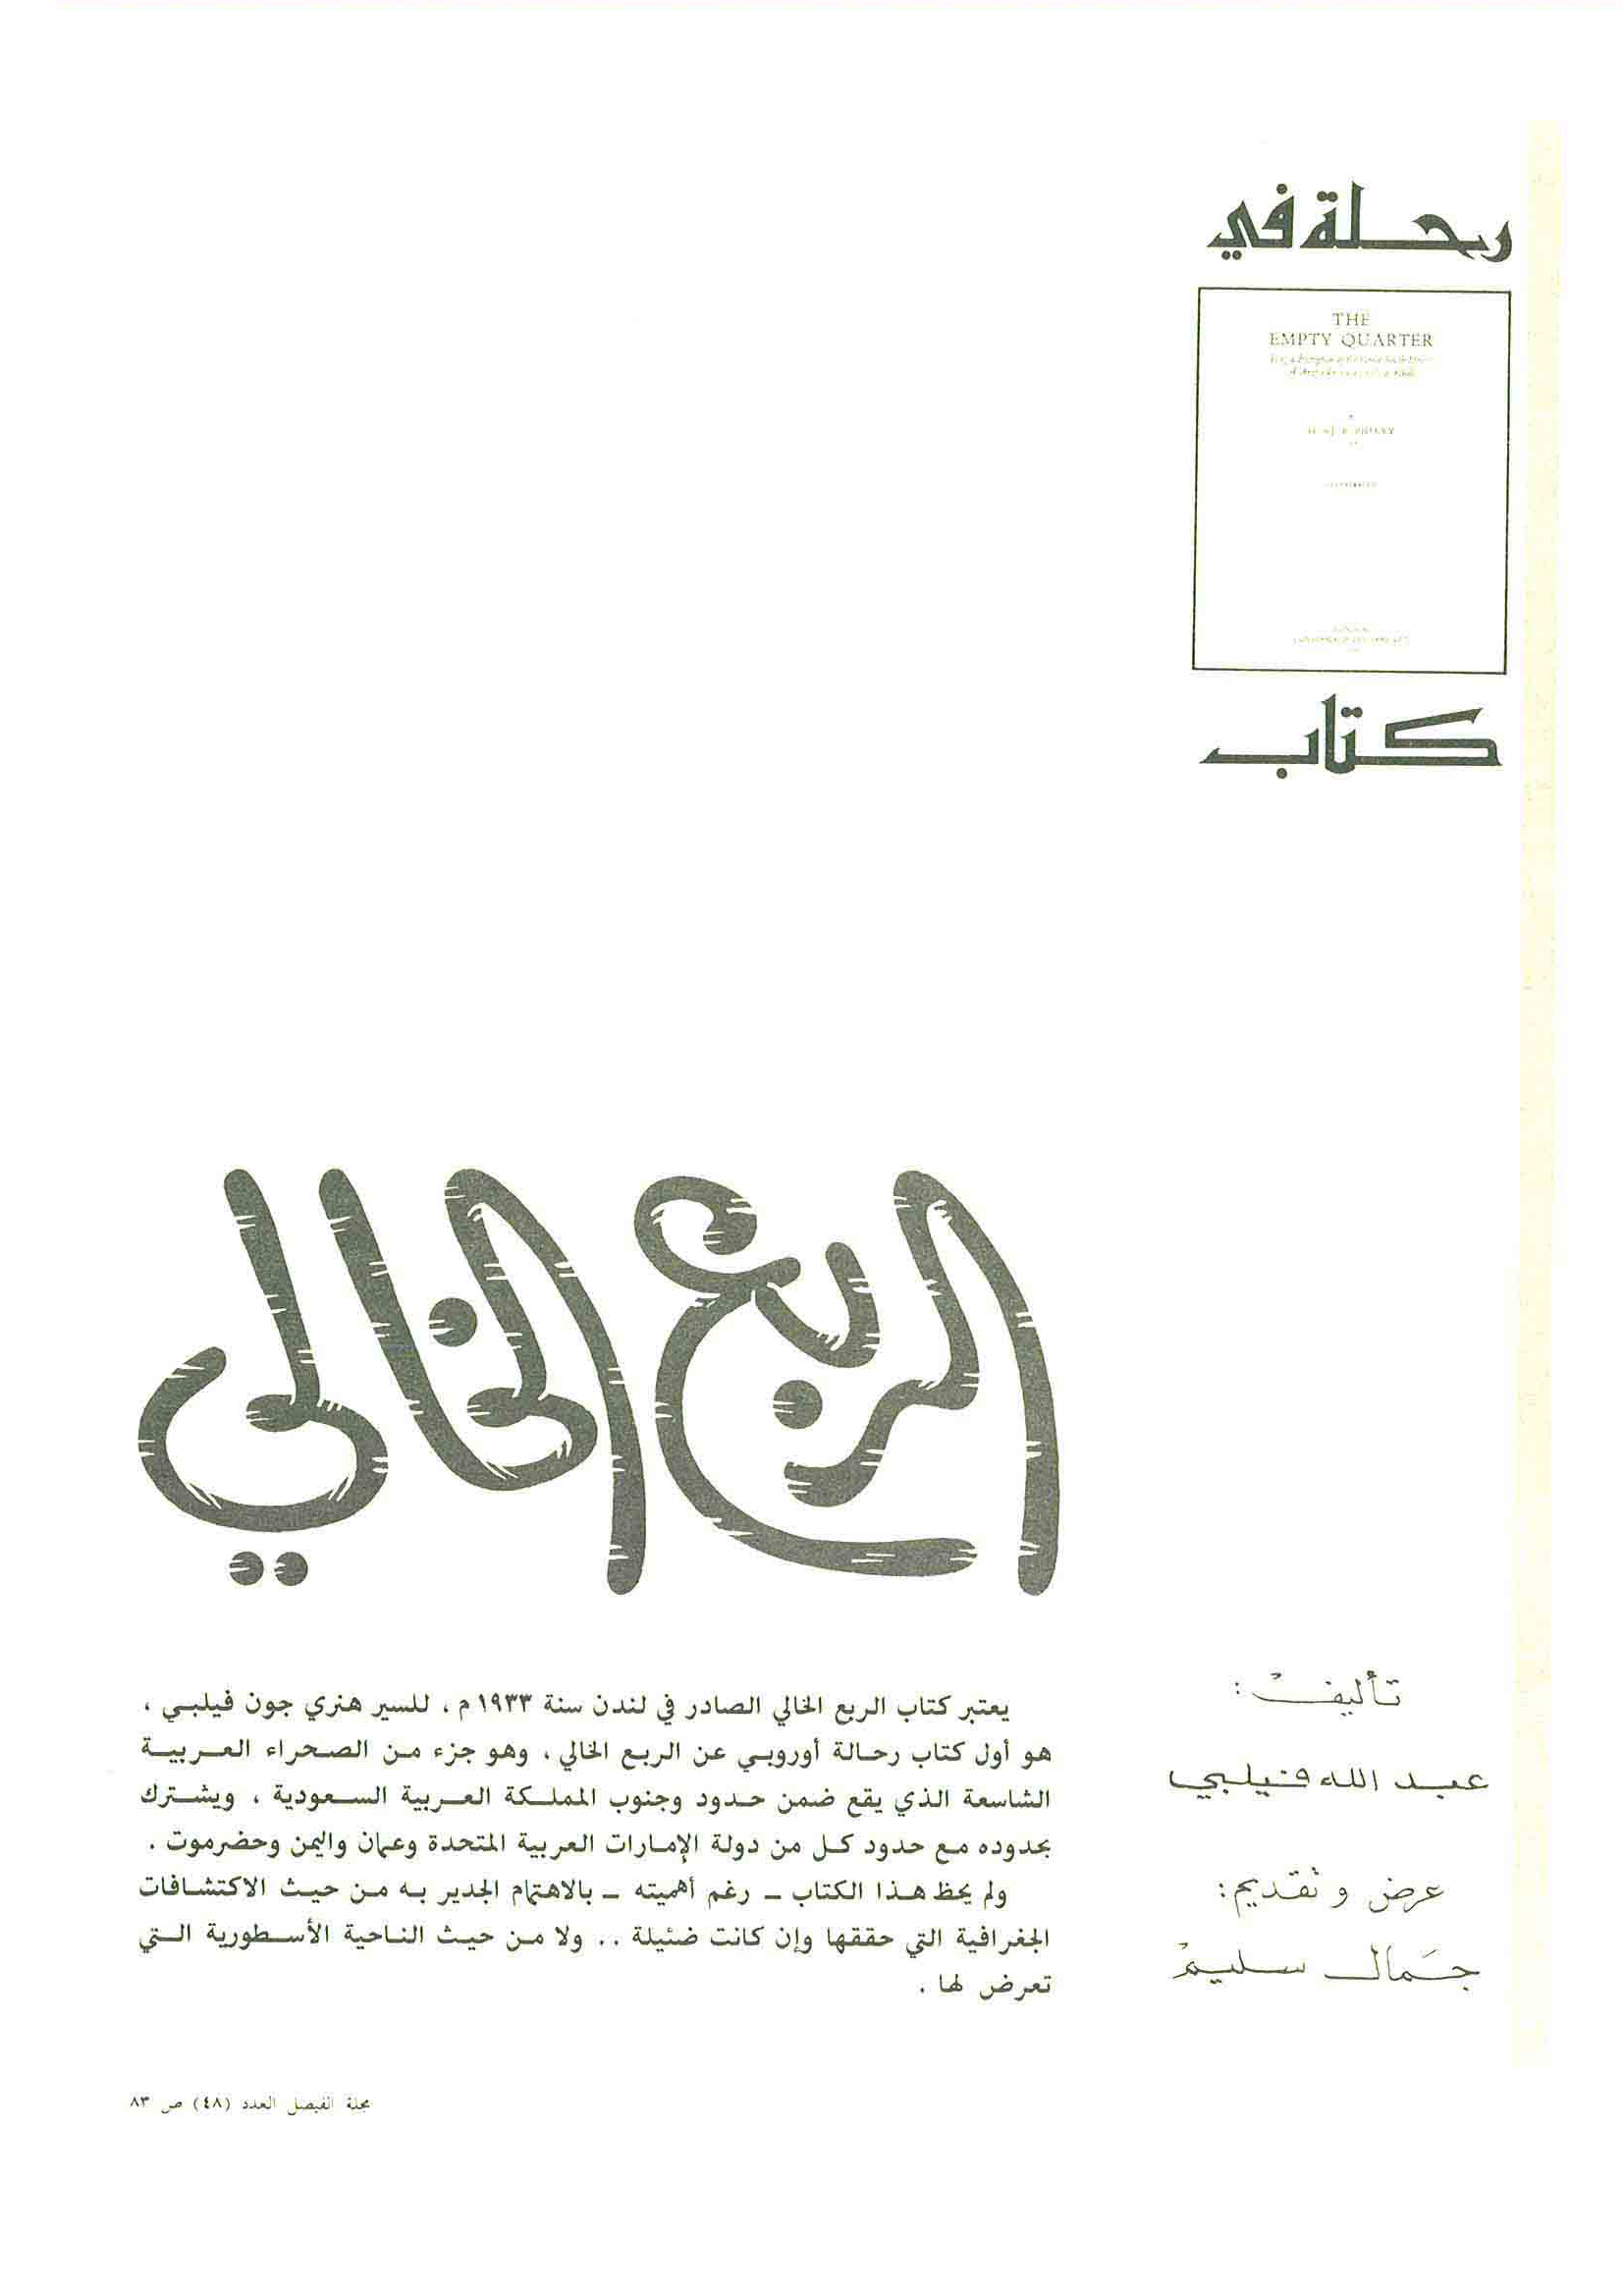 رحلة في
THE
EMPTY QUARTER
كتاب
الربع الخالي
تأليف :
عبد الله فيلبي
عرض و تقديم :
جمال سليم
يعتبر كتاب الربع الخالي الصادر في لندن سنة ١٩٣٣ م ، للسير هنري جون فيلبي ،
هو أول كتاب رحالة أوروبي عن الربع الخالي ، وهو جزء من الصحراء العربية
الشاسعة الذي يقع ضمن حدود وجنوب المملكة العربية السعودية ، ويشترك
بحدوده مع حدود كل من دولة الإمارات العربية المتحدة وعمان واليمن وحضرموت .
ولم يحظ هذا الكتاب – رغم أهميته – بالاهتمام الجدير به من حيث الاكتشافات
الجغرافية التي حققها وإن كانت ضئيلة .. ولا من حيث الناحية الأسطورية التي
تعرض لها .
مجلة الفيصل العدد (٤٨) ص ٨٣